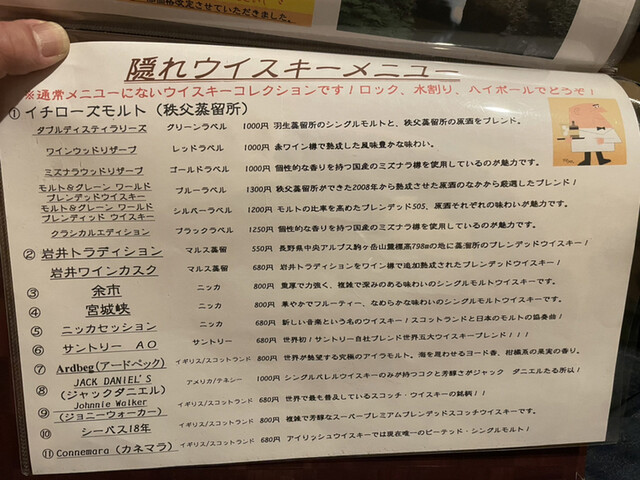 格改定させていただきました。
隠れウイスキーメニュー
※通常メニューにないウイスキーコレクションです！ロック、水割り、ハイボールでどうぞ！
①イチローズモルト（秩父蒸留所）
ダブルディスティラリーズ グリーンラベル 1000円 羽生蒸留所のシングルモルトと、秩父蒸留所の原酒をブレンド。
ワインウッドリザーブ レッドラベル 1000円 赤ワイン樽で熟成した風味豊かな味わい。
ミズナラウッドリザーブ ゴールドラベル 1000円 個性的な香りを持つ国産のミズナラ樽を使用しているのが魅力です。
モルト&グレーン ワールド
ブレンデッドウイスキー ブルーラベル 1300円 秩父蒸留所ができた2008年から熟成させた原酒のなかから厳選したブレンド！
モルト&グレーン ワールド
ブレンディッド ウイスキー シルバーラベル 1200円 モルトの比率を高めたブレンデッド505、原酒それぞれの味わいが魅力です。
クラシカルエディション ブラックラベル 1250円 個性的な香りを持つ国産のミズナラ樽を使用しているのが魅力です。
② 岩井トラディション マルス蒸留 550円 長野県中央アルプス駒ヶ岳山麓標高798mの地に蒸溜所のブレンデッドウイスキー！
岩井ワインカスク マルス蒸留 680円 岩井トラディションをワイン樽で追加熟成されたブレンデッドウイスキー！
③ 余市 ニッカ 800円 重厚で力強く、複雑で深みのある味わいのシングルモルトウイスキーです。
④ 宮城峡 ニッカ 800円 華やかでフルーティー、なめらかな味わいのシングルモルトウイスキーです。
⑤ ニッカセッション ニッカ 680円 新しい音楽という名のウイスキー！スコットランドと日本のモルトの協奏曲！
⑥ サントリー AO サントリー 680円 世界初！サントリー自社ブレンド世界五大ウイスキーブレンド！！！
⑦ Ardbeg(アードベック) イギリス/スコットランド 800円 世界が熱望する究極のアイラモルト。海を思わせるヨード香、柑橘系の果実の香り。
⑧ JACK DANIEL'S
（ジャックダニエル） アメリカ/テネシー 1000円 シングルバレルウイスキーのみが持つコクと芳醇さがジャック ダニエルたる所以！
⑨ Johnnie Walker
（ジョニーウォーカー） イギリス/スコットランド 680円 世界で最も普及しているスコッチ・ウイスキーの銘柄！！
⑩ シーバス18年 イギリス/スコットランド 800円 複雑で芳醇なスーパープレミアムブレンデッドスコッチウイスキーです。
⑪ Connemara（カネマラ） イギリス/スコットランド 680円 アイリッシュウイスキーでは現在唯一のピーテッド・シングルモルト！